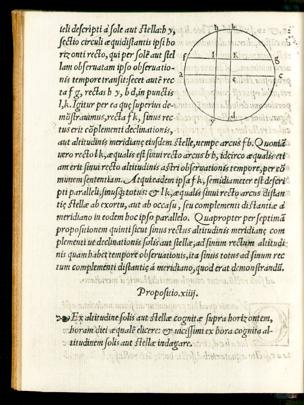 teli descripti à sole aut stella: h y,
sectio circuli æquidistantis ipsi ho
rizonti recto, qui per solẽ aut stel
lam obseruatam ipso obseruatio-
nis tempore transit: secet autẽ re
cta f g, rectas h y, b d, in punctis
l, k. Igitur per ea quę superius de-
mõstrauimus, recta f k, sinus rec
tus erit cõplementi declinationis,
aut altitudinis meridianę eiusdem stellę, nempe arcus f b. Quoniã
uero recto l k, æqualis est sinui recto arcus b h, idcirco æqualis eti
am erit sinui recto altitudinis astri obseruationis tempore, per cõ
munem sententiam. At quia eadem ipsa f k, semidiameter est descri
pti paralleli, sinusq; totus & l k, æqualis sinui recto arcus distan
tię stellæ ab exortu, aut ab occasu, seu complementi distantiæ à
meridiano in eodem hoc ipso parallelo. Quapropter per septimã
propositionem quinti sicut sinus rectus altitudinis meridianę com
plementi ue declinationis solis aut stellæ, ad sinum rectum altitudi
nis quam habet tempore obseruationis, ita sinus totus ad sinum rec
tum complementi distantię à meridiano, quod erat demonstrandũ.
Propositio. xiiij.
Ex altitudine solis aut stellæ cognitæ supra horizontem,
horam diei æqualẽ elicere: & uicissim ex hora cognita al-
titudinem solis aut stellæ indagare.
h b
f l k g
a e c
y d